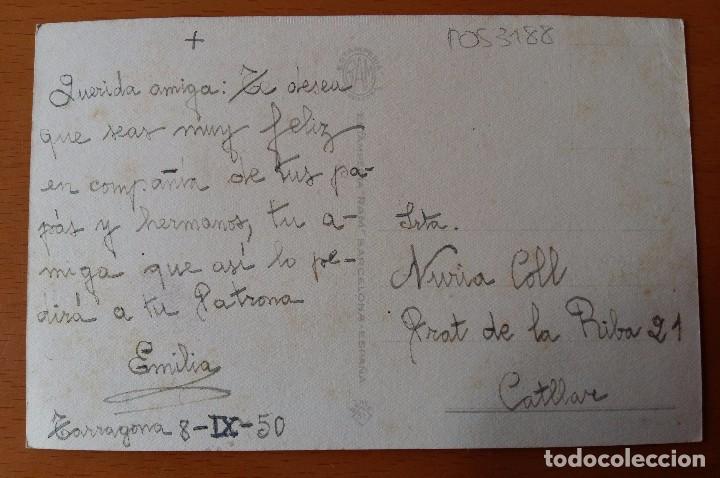 +
POS3188
Querida amiga: Te desea
que seas muy feliz
en compañia de tus pa-
pás y hermanos, tu a-
miga que así lo pe-
dirá a tu Patrona
Emilia
Tarragona 8-IX-50
Srta.
Nuria Coll
Prat de la Riba 21
Catllar
ESTAMPERIA "RAM" BARCELONA-ESPAÑA
todocoleccion